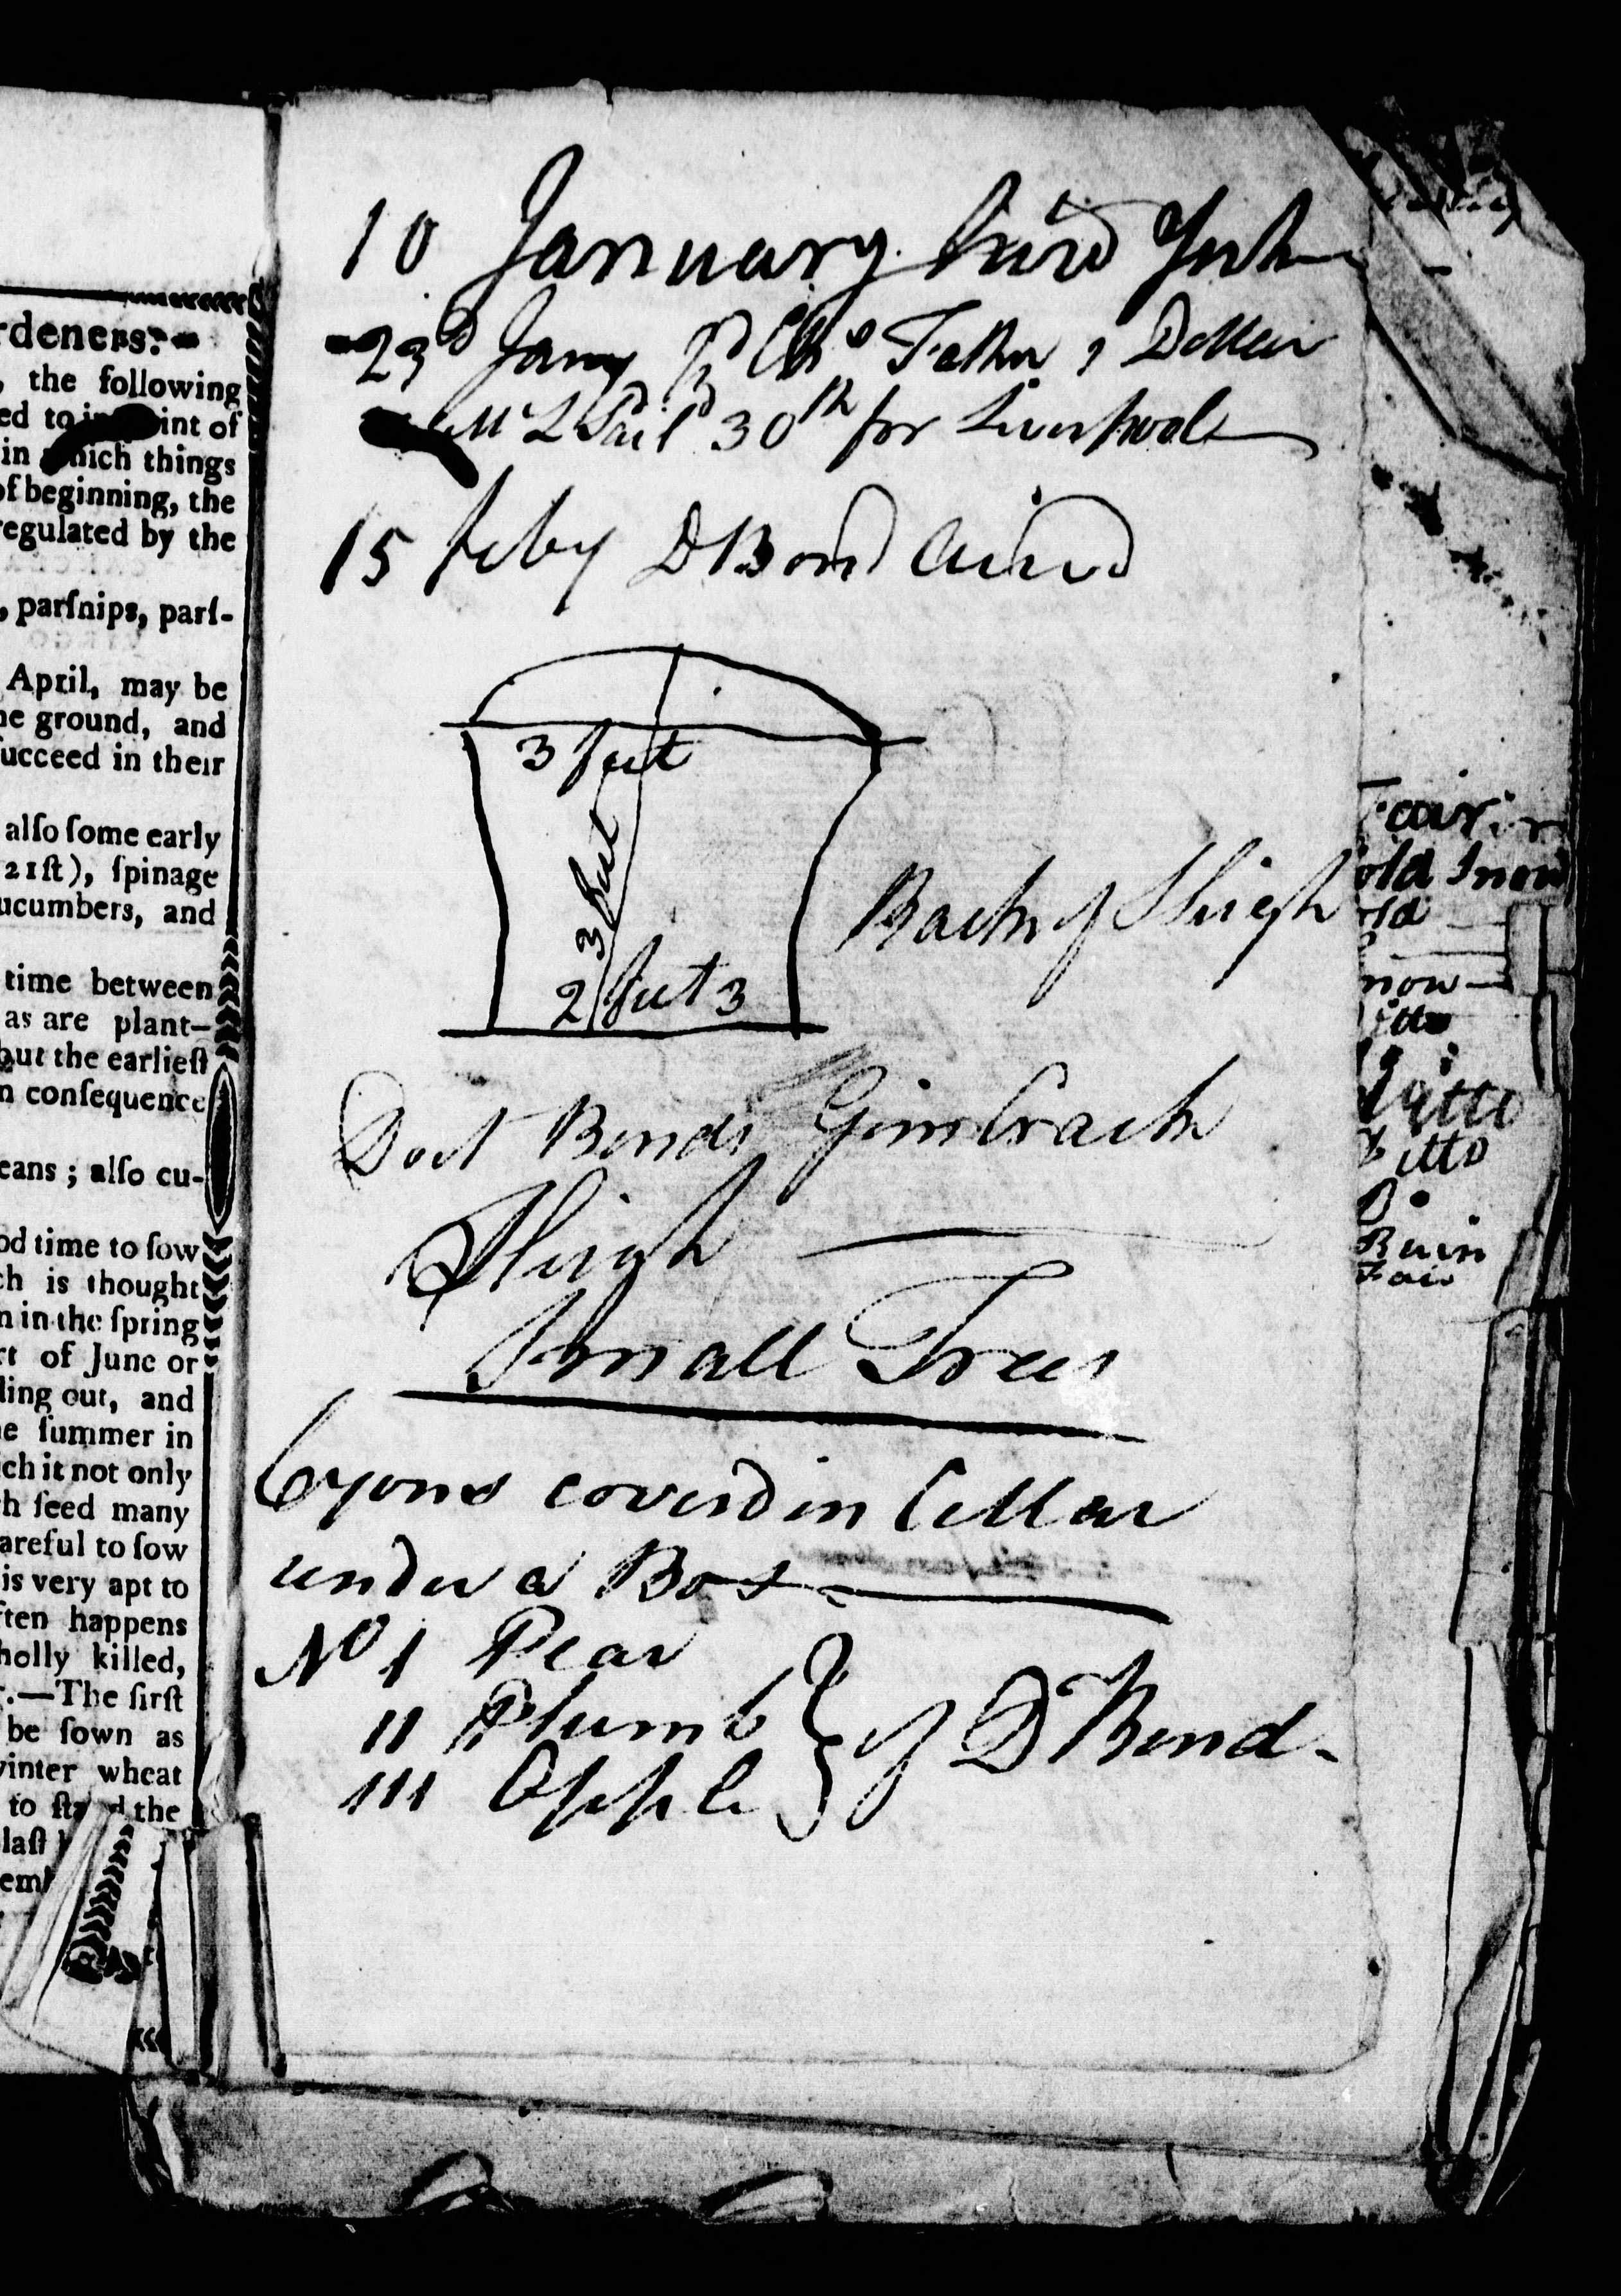 rdeners.
, the following
ed to in point of
in which things
of beginning, the
regulated by the
, parſnips, parſ-
April, may be
he ground, and
ſucceed in their
alſo ſome early
21ſt), ſpinage
ucumbers, and
time between
as are plant-
but the earlieſt
n conſequence
eans ; alſo cu-
od time to ſow
ch is thought
n in the ſpring
rt of June or
ling out, and
e ſummer in
ch it not only
h ſeed many
areful to ſow
is very apt to
ften happens
holly killed,
.—The firſt
be ſown as
vinter wheat
to ſtand the
laſt
emb
10 January hired
23d Jany pd Chs 1 Doller
Mr L Sail'd 30th for Liverpool
15 feby D Bond
3 feet
3 feet
2 feet 3
Back of Sleigh
Doct Bonds Gimcrack
Sleigh
Small Trees
Cyons coverd in Cellar
under a Box
No 1 Pear
11 Plumb
111 Apple
of D Bond
old Snow
old
now
itto
itto
itto
Fair